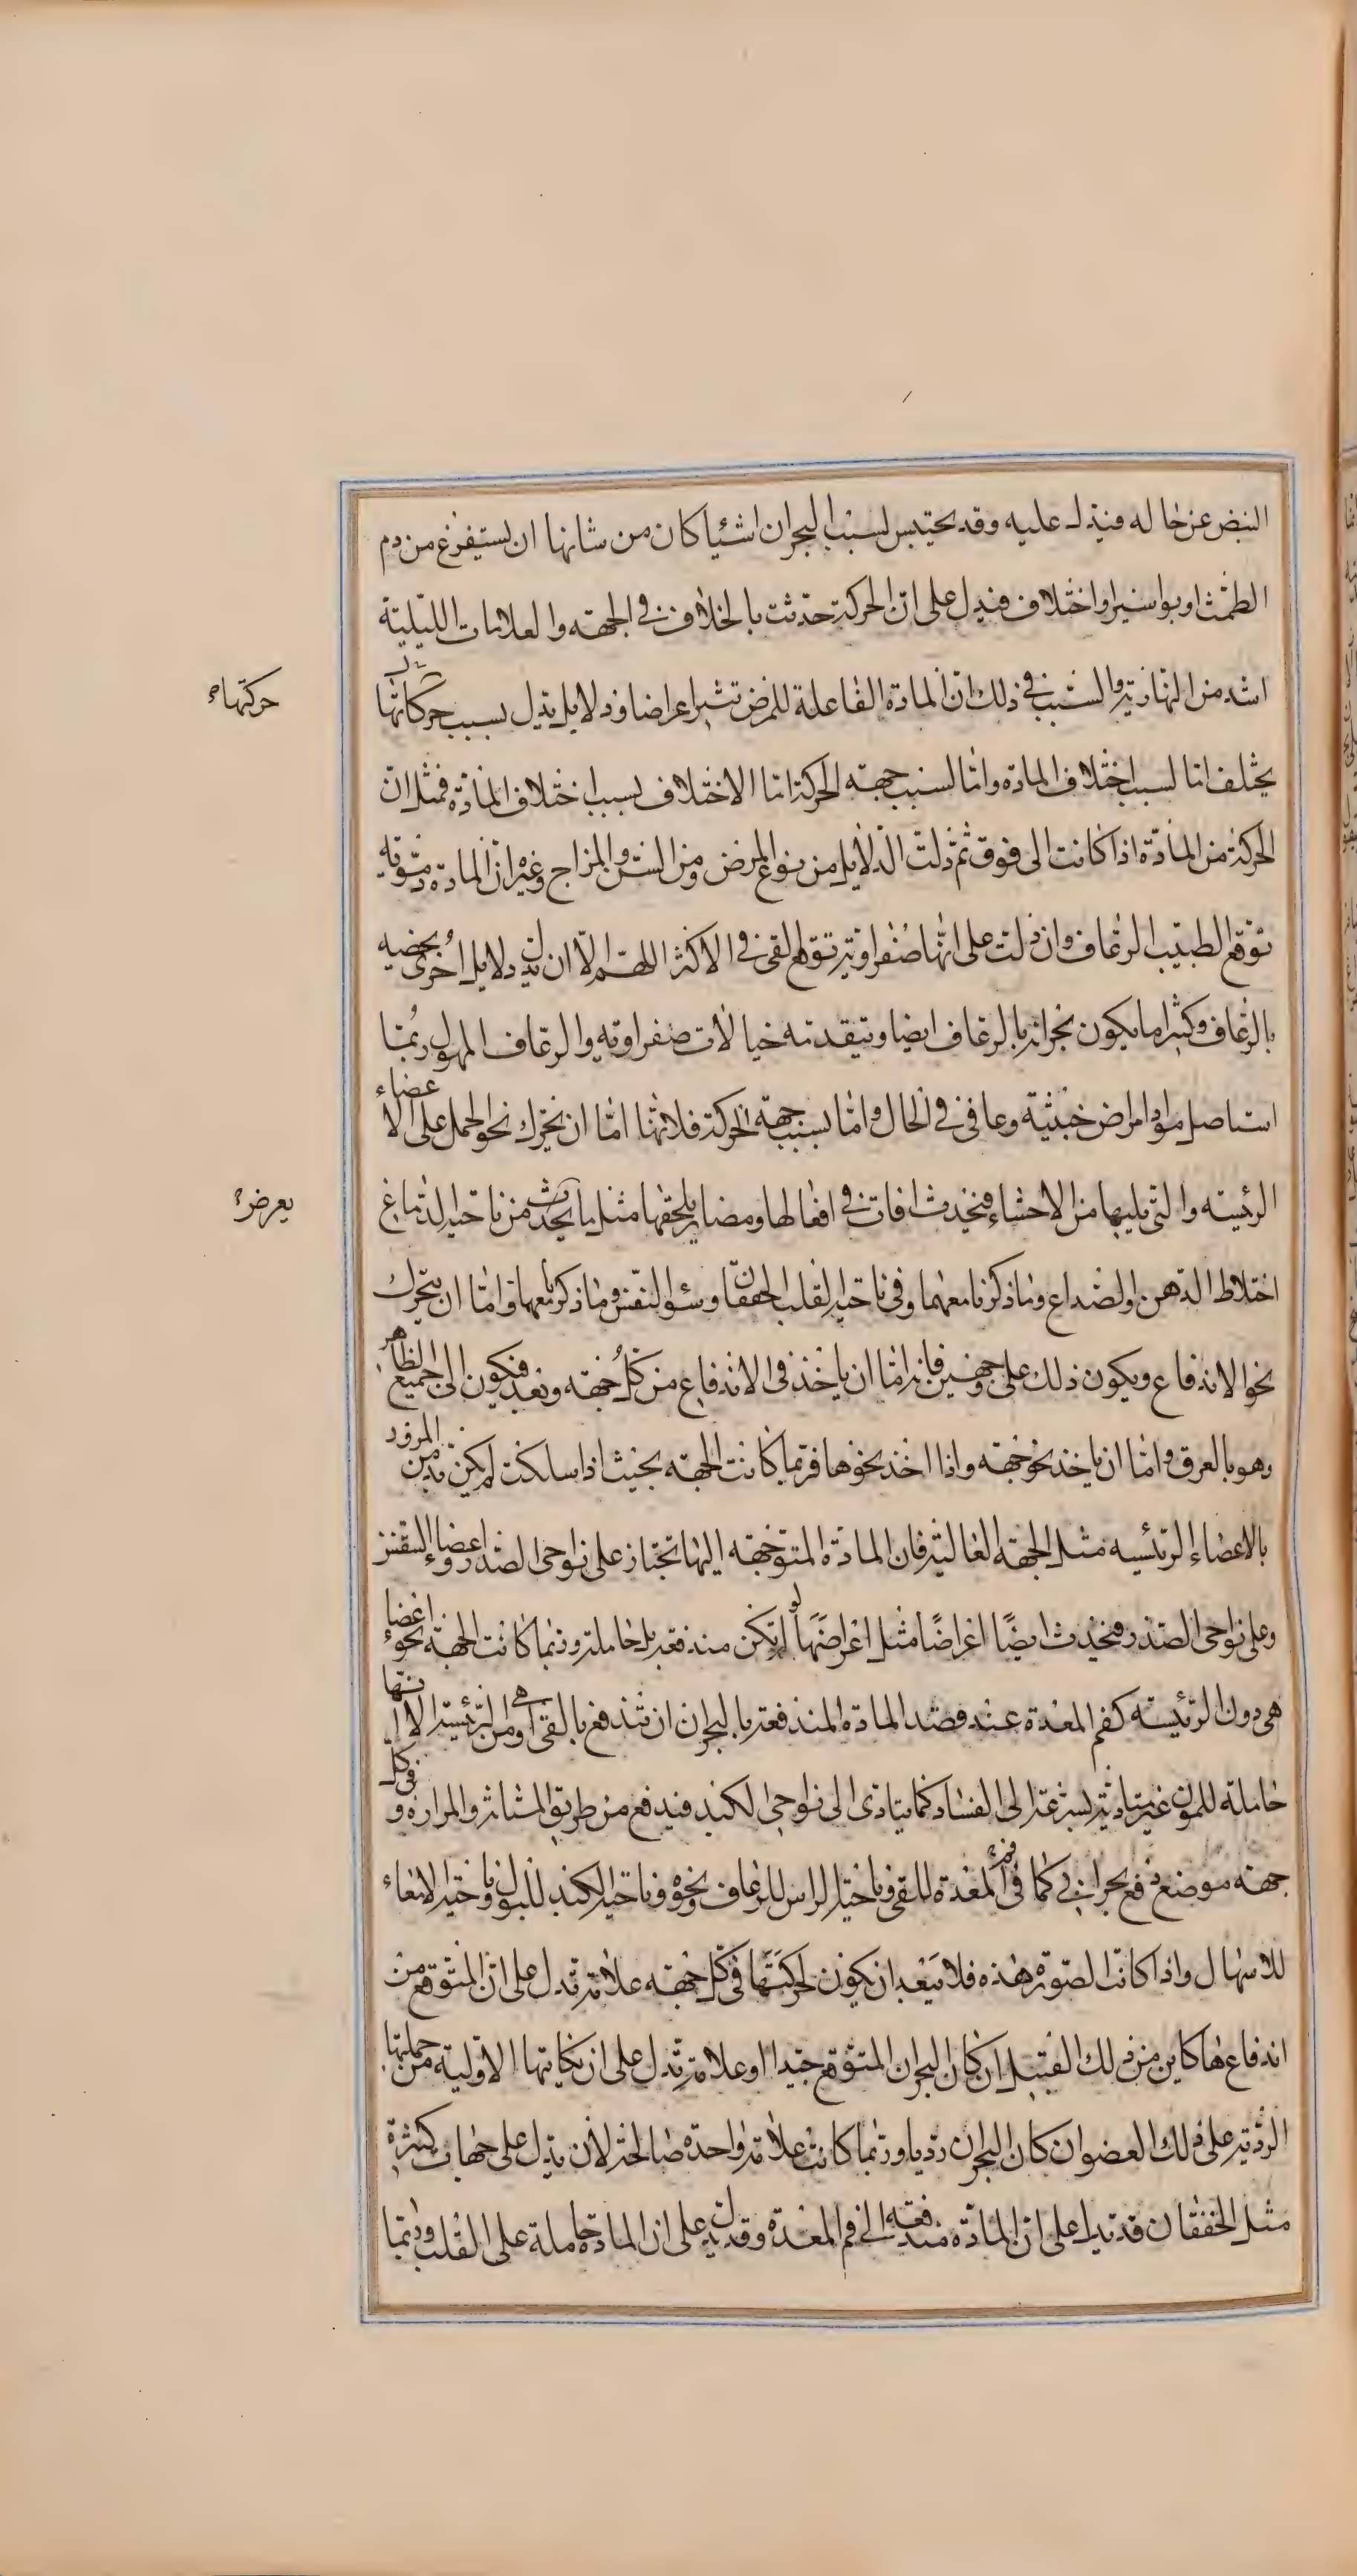 النبض عن حاله فيدل عليه وقد يحتبس لسبب البحران اشئيا كان من شانها ان يستفرغ من دم
الطمث او بواسير او اختلاف فيدل على ان الحركة حدثت بالخلاف في الجهته والعلامات الليلية
اشد من النهارية والسبب في ذلك ان المادة الفاعلة للمرض تثير اعراضا ودلايل يدل بسبب حركاتها
حركتها
يختلف اما لسبب اختلاف المادة واما لسبب جهته الحركة اما الاختلاف بسبب اختلاف المادة فمثل ان
الحركة من المادة اذا كانت الى فوق ثم دلت الدلايل من نوع المرض ومن السن والمزاج وغيره ان المادة دموّيه
توقع الطبيب الرعاف وان دلت على انها صفراوية توقع القى في الاكثر اللهم الا ان يدل دلايل اخرى يخصه
بالرعاف وكثيرا ما يكون بحرانه بالرعاف ايضا ويتقدمه خيالات صفراويه والرعاف المهول ربما
استاصل مواد امراض خبيثة وعافى في الحال واما بسبب جهة الحركة فلانها اما ان يتحرك نحو الحمل على الاعضاء
الرئيسته والتي يليها من الاحشاء فيحدث افات في افعالها ومضار يلحقها مثل ما يحدث من ناحية الدماغ
يعرض
اختلاط الذهن والصداع وما ذكرنا معهما وفي ناحية القلب الخفقان وسئو النفس وما ذكر معها واما ان يتحرك
نحو الاندفاع ويكون ذلك على وجهين فانه اما ان ياخذ في الاندفاع من كل جهته وبعد فيكون الى جميع الظاهر
وهو بالعرق واما ان ياخذ نحو جهته واذا اخذ نحوها فربما كانت الجهته بحيث اذا سلكت لم يكن بد من المرور
بالاعضاء الرئيسيه مثل الجهته العاليه فان المادة المتوجهته اليها تجتاز على نواحى الصدر واعضاء التنفس
وعلى نواحى الصدر فيحدث ايضًا اعراضًا مثل اعراضَهَا لو لم تكن مندفعه بل حاملة وربما كانت الجهة نحو اعضاء
هى دون الرئيسته كفم المعدة عند قصد المادة المندفعة بالبحران ان تندفع بالقى او هى من الرئيسته الا انها
حاملة للمون غير متادية بسرعة الى الفساد كما يتادى الى نواحى الكبد فيدفع من طريق المثانة والمرارة وفى كل
جهته موضع دفع بحرانى كما فى فم المعدة للقى وناحية الراس للرعاف ونحوه وناحية الكبد للبول وناحية الامعاء
للاسهال واذا كانت الصورة هذه فلا يبعد ان يكون لحركتها فى كل جهته علامة تدل على ان المتوقع من
اندفاعها كاين من ذلك القبيل ان كان البحران المتوقع جيدا او علامة تدل على ان نكايتها الاولية من حملتها
الردية على ذلك العضو ان كان البحران رديا وربما كانت علامة واحدة صالحة لان يدل على جهات كثيرة
مثل الخفقان قد تدل على ان المادة مندفعه الى فم المعدة وقد يدل على ان المادة حاملة على القلب وربما